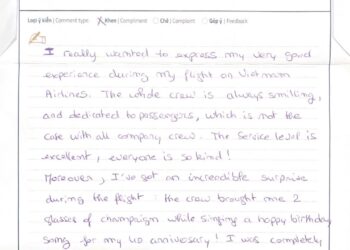 Loại ý kiến | Comment type Khen | Compliment Chê | Complaint Góp ý | Feedback
I really wanted to express my very good
experience during my flight on Vietnam
Airlines. The whole crew is always smiling,
and dedicated to passengers, which is not the
case with all company crew. The service level is
excellent, everyone is so kind!
Moreover, I've got an incredible surprise
during the flight: the crew brought me 2
glasses of champaign while singing a happy birthday
song for my 40 anniversary! I was completely